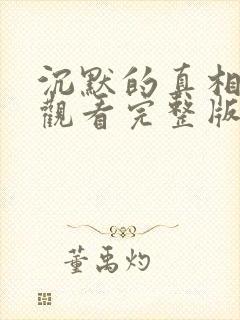 沉默的真相
觀看完整版
董禹灼